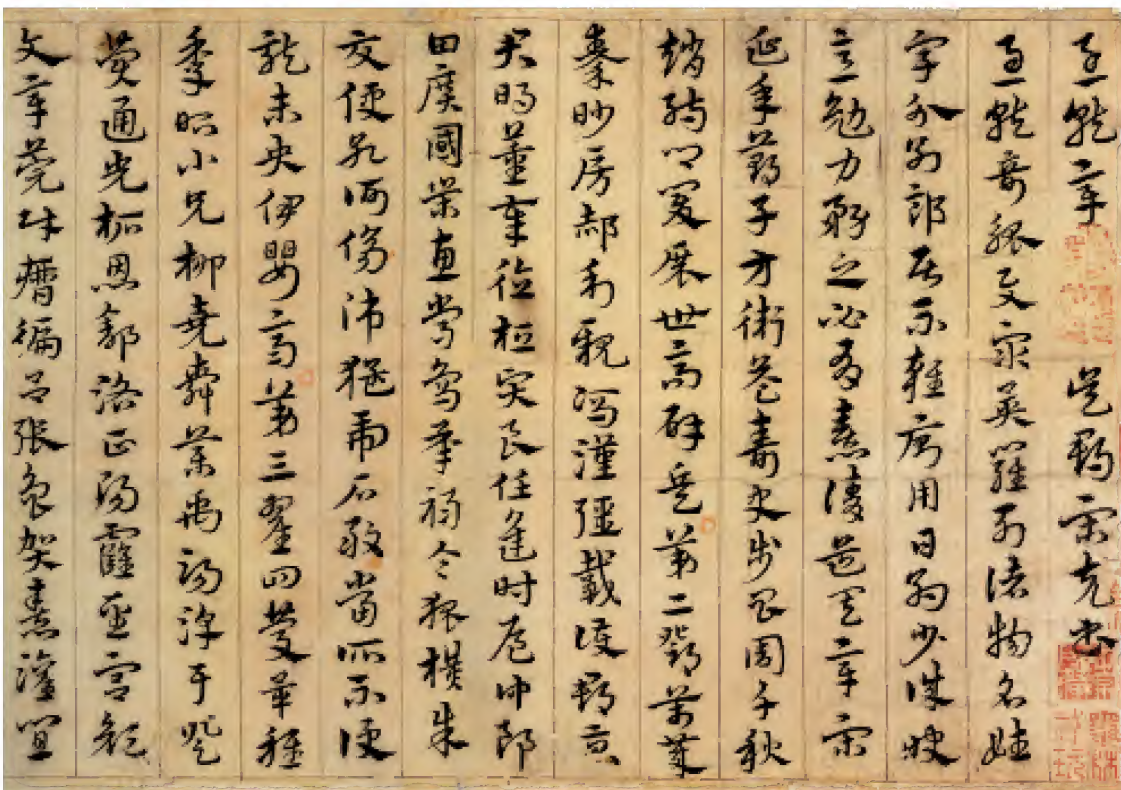 急就章 吳郡宋克書
急就奇觚與衆異羅列諸物名姓
字分別部居不雜廁用日約少誠快
意勉力務之必有憙請道其章宋
延年鄭子方衛益壽史步昌周千秋
趙孺卿爰展世高辟兵第二鄧萬歲
秦眇房郝利親馮漢彊戴護郡景
君明董奉德桓賢良任逢時侯仲郎
田廣國榮惠常烏承祿令狐橫朱
交便孔何傷師猛虎石敢當所不侵
龍未央伊嬰齊第三翟回慶畢稚
季昭小兄柳堯舜藥禹湯淳于登
費通光柘恩舒洛正陽霍聖宮顏
文章莞財歷徧呂張魯賀憙灌宜